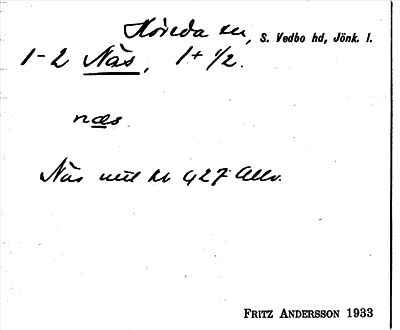 Höreda sn, S. Vedbo hd, Jönk. l.
1-2 Näs, 1+1/2.
næs
Näs enl kb 427 Allv.
FRITZ ANDERSSON 1933